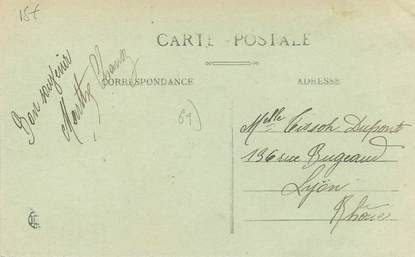 15f
CARTE POSTALE
CORRESPONDANCE
ADRESSE
Bon souvenir
Marthe
69)
Melle Tissot Dupont
136 rue Bugeaud
Lyon
Rhône